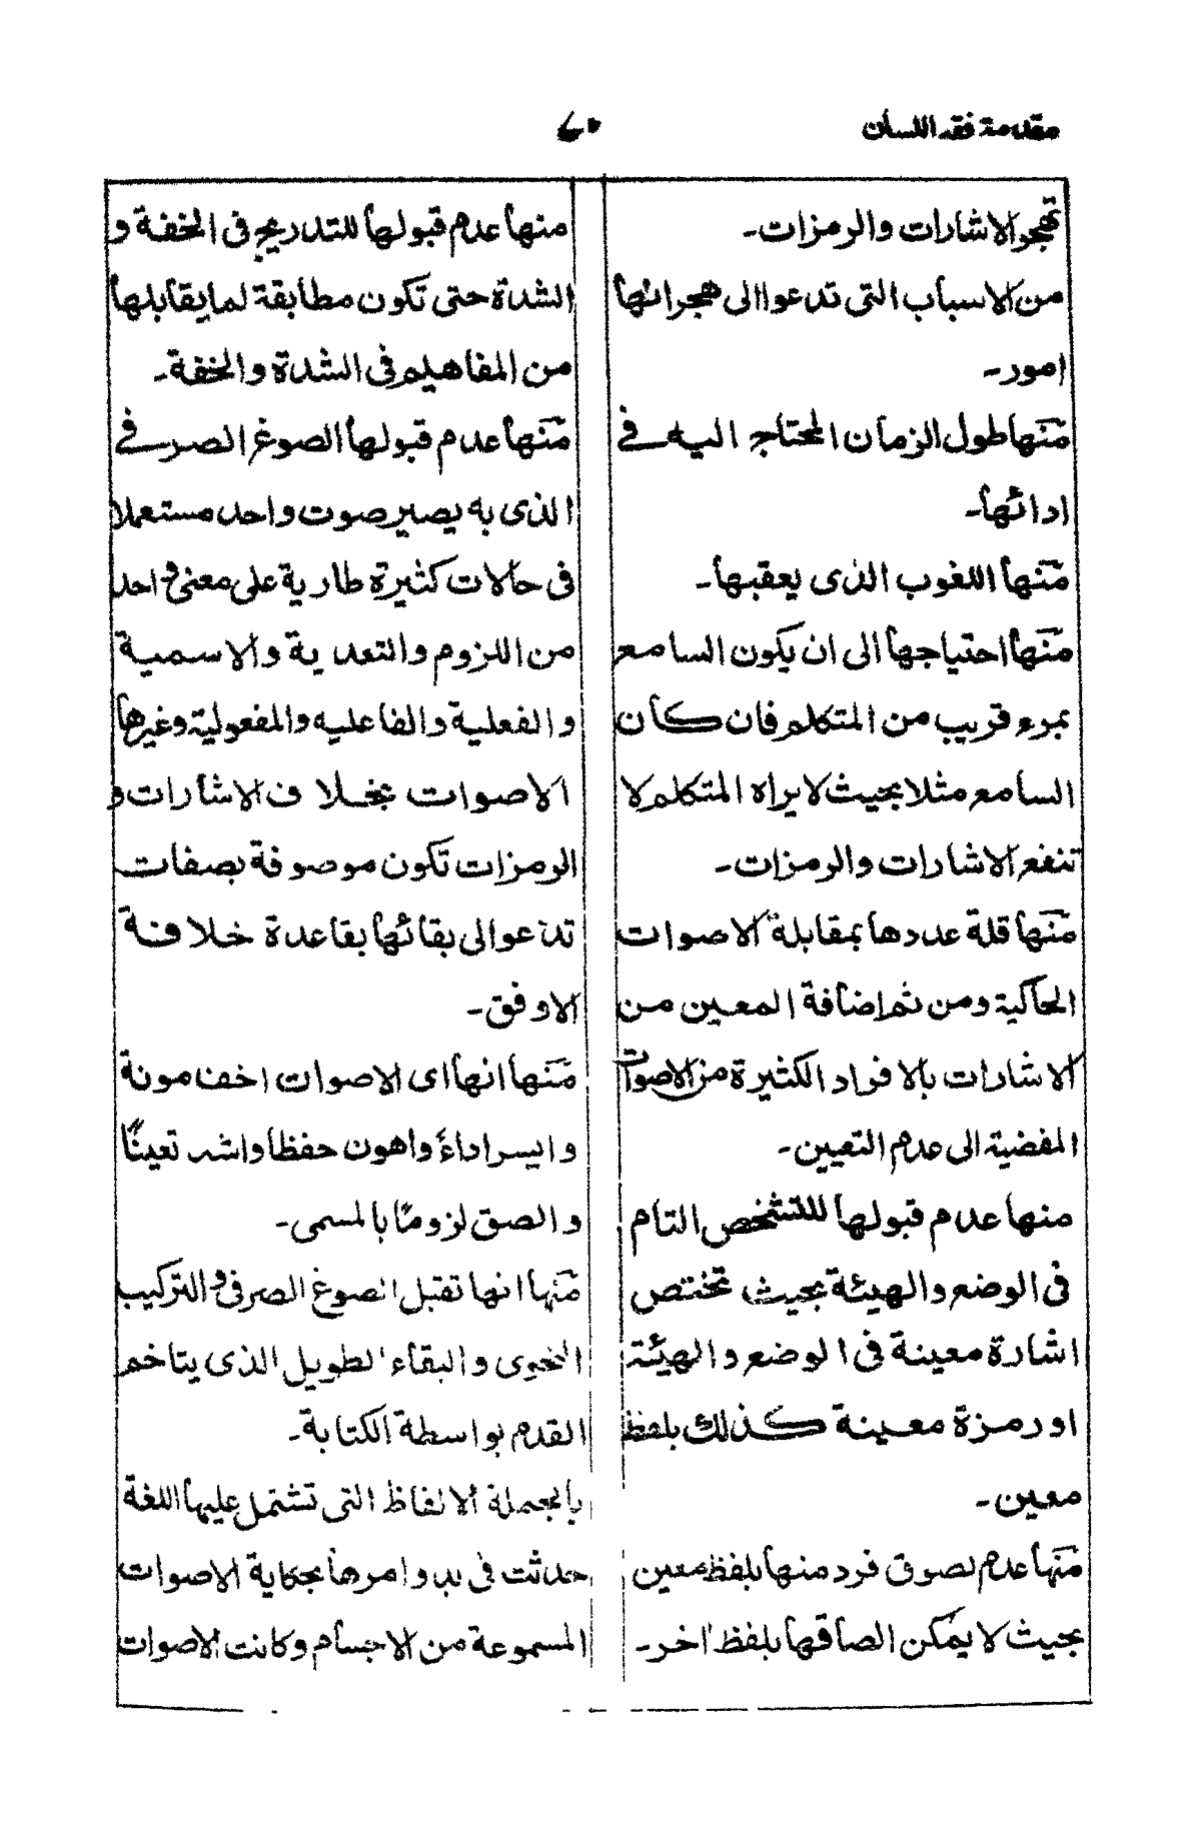 مقدمة فقه اللسان
٤٠
تهجو الاشارات والرمزات۔
من الاسباب التى تدعوا الى هجرانها
امور۔
مّنها طول الزمان المحتاج اليه فى
ادائها۔
مّنها اللغوب الذى يعقبها۔
مّنها احتياجها الى ان يكون السامع
بمرء قريب من المتكلم فان كان
السامع مثلا بحيث لا يراه المتكلم لا
تنفع الاشارات والرمزات۔
مّنها قلة عددها بمقابلة الاصوات
الحاكية ومن ثم اضافة المعين من
الاشارات بالافراد الكثيرة من الاصوات
المفضية الى عدم التعيين۔
منها عدم قبولها للتشخص التام
فى الوضع والهيئة بحيث تختص
اشارة معينة فى الوضع والهيئة
او رمزة معينة كذلك بلفظ
معين۔
مّنها عدم لصوق فرد منها بلفظ معين
بحيث لا يمكن الصاقها بلفظ اخر۔
منها عدم قبولها للتدريج فى الخفة و
الشدة حتى تكون مطابقة لما يقابلها
من المفاهيم فى الشدة والخفة۔
مّنها عدم قبولها الصوغ الصرفى
الذى به يصير صوت واحد مستعملا
فى حالات كثيرة طارية على معنى واحد
من اللزوم والتعدية والاسمية
والفعلية والفاعليه والمفعولية وغيرها
الاصوات بخلاف الاشارات و
الرمزات تكون موصوفة بصفات
تدعو الى بقائها بقاعدة خلافة
الاوفق۔
مّنها انها اى الاصوات اخف امونة
وايسر اداءً واهون حفظا واشد تعينًا
والصق لزومًا بالمسمى۔
مّنها انها تقبل الصوغ الصرفى والتركيب
النحوى والبقاء الطويل الذى يتاخم
القدم بواسطة الكتابة۔
بالجملة الالفاظ التى تشتمل عليها اللغة
حدثت فى بدو امرها بحكاية الاصوات
المسموعة من الاجسام وكانت الاصوات